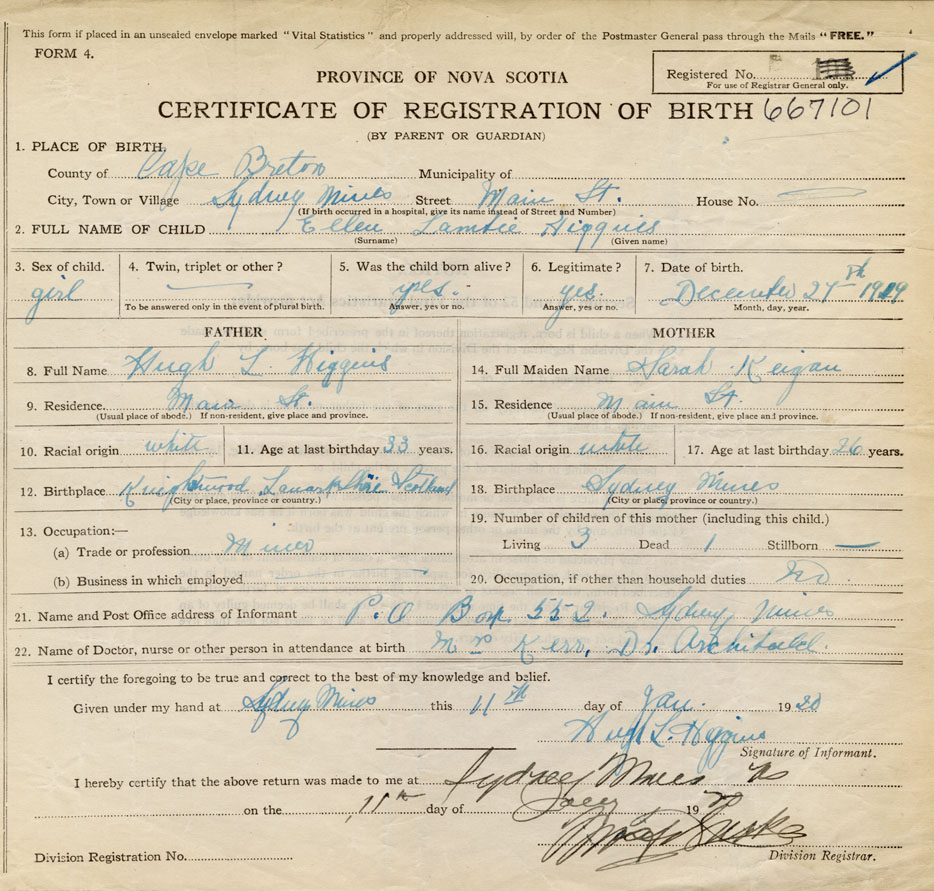 This form if placed in an unsealed envelope marked "Vital Statistics" and properly addressed will, by order of the Postmaster General pass through the Mails "FREE."
FORM 4.
PROVINCE OF NOVA SCOTIA
Registered No.
For use of Registrar General only.
CERTIFICATE OF REGISTRATION OF BIRTH 667101
(BY PARENT OR GUARDIAN)
1. PLACE OF BIRTH,
County of Cape Breton Municipality of
City, Town or Village Sydney Mines Street Main St. House No.
(If birth occurred in a hospital, give its name instead of Street and Number)
2. FULL NAME OF CHILD Ellen Higgins
(Surname) (Given name)
3. Sex of child. 4. Twin, triplet or other? 5. Was the child born alive? 6. Legitimate? 7. Date of birth.
girl yes. yes. December 27th 1919
To be answered only in the event of plural birth. Answer, yes or no. Answer, yes or no. Month, day, year.
FATHER MOTHER
8. Full Name Hugh L Higgins 14. Full Maiden Name Sarah Keigan
9. Residence. Main St. 15. Residence Main St
(Usual place of abode.) If non-resident, give place and province. (Usual place of abode.) If non-resident, give place and province.
10. Racial origin white 11. Age at last birthday 33 years. 16. Racial origin white 17. Age at last birthday 26 years.
12. Birthplace Lanarkshire Scotland 18. Birthplace Sydney Mines
(City or place, province or country.) (City or place, province or country.)
13. Occupation:— 19. Number of children of this mother (including this child.)
(a) Trade or profession Miner Living 3 Dead 1 Stillborn —
(b) Business in which employed 20. Occupation, if other than household duties No.
21. Name and Post Office address of Informant P.O Box 552. Sydney Mines
22. Name of Doctor, nurse or other person in attendance at birth Mrs Kerr, Dr. Archibald.
I certify the foregoing to be true and correct to the best of my knowledge and belief.
Given under my hand at Sydney Mines this 11th day of Jan. 1920
Hugh L. Higgins
Signature of Informant.
I hereby certify that the above return was made to me at Sydney Mines NS
on the 11th day of 19
Division Registration No. Division Registrar.